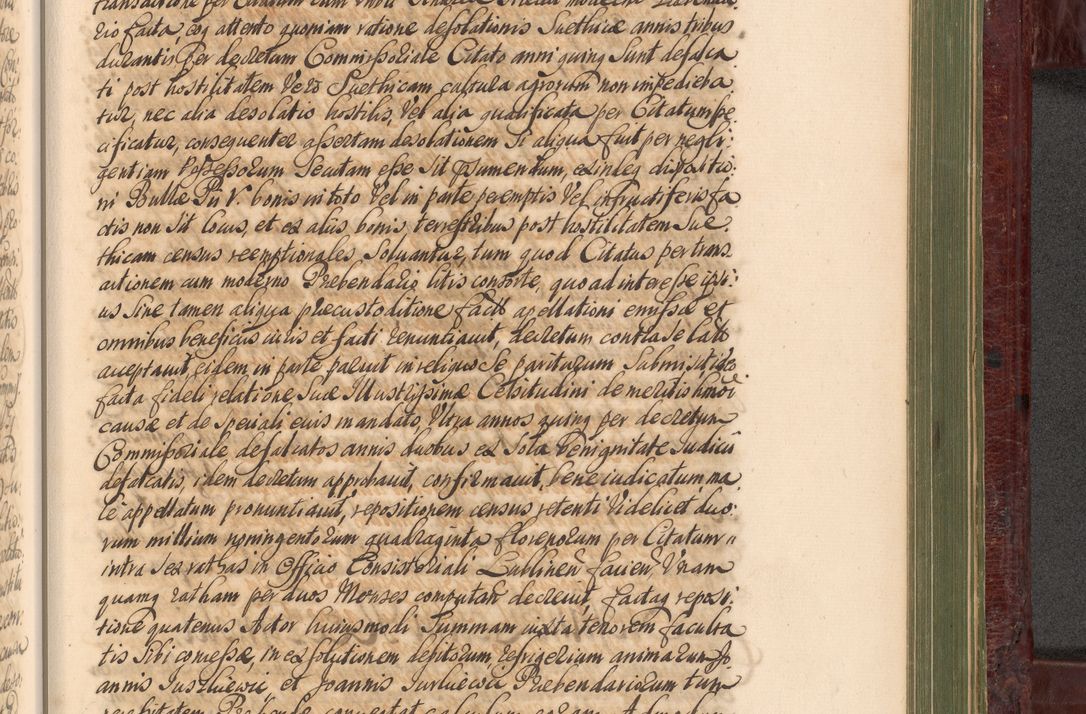 rio facta, eoq attento quoniam ratione desolationis Suethicæ annis tribus
durantis per decretum Commissoriale Citato anni quinq Sunt defalca
ti post hostilitatem Vero Suethicam cultura agrorum non impedieba
tur, nec alia desolatio hostilis, Vel alia qualificata per Citatum spe
cificatur, consequenter assertam desolationem Si aliqua fuit per negli
gentiam Possessorum Secutam esse Sit
ni Bullæ Pii V. bonis in toto Vel in parte peremptis Vel infructiferis fa
ctis non Sit locus, et ex aliis bonis terrestribus post hostilitatem Sue
thicam census reemptionales Solvantur, tum quod Citatus per trans
actionem cum moderno Præbendario litis consorte, quo ad interesse ipsi
us Sine tamen aliqua præcustoditione facto apellationi emissæ et
omnibus beneficiis iuris et facti renuntiavit, decretum contra se lato
acceptavit, eidem in parte paruit in reliquo Se pariturum Submisit ideo
facta fideli relatione Suæ Illustrissimæ Celsitudini de meritis
causæ et de Speciali eius mandato, Ultra annos quinq per decretum
Commissoriale defalcatos annis duobus ex Sola Benignitate Iudicii
defalcatis, idem decretum approbavit, confirmavit, bene iudicatum ma
le appellatum pronuntiavit, repositionem census retenti Videlicet duo
rum millium nonningentorum quadraginta florenorum per Citatum
intra Sex rathas in Officio Consistoriali Lublinen facien, Unam
quamq ratham per duos Menses computan decrevit, factaq reposi
tione quatenus Actor huiusmodi Summam iuxta tenorem faculta
tis Sibi concessæ, in exsolutionem debitorum, refrigerium animarum Jo
annis et Joannis Præbendariorum tum